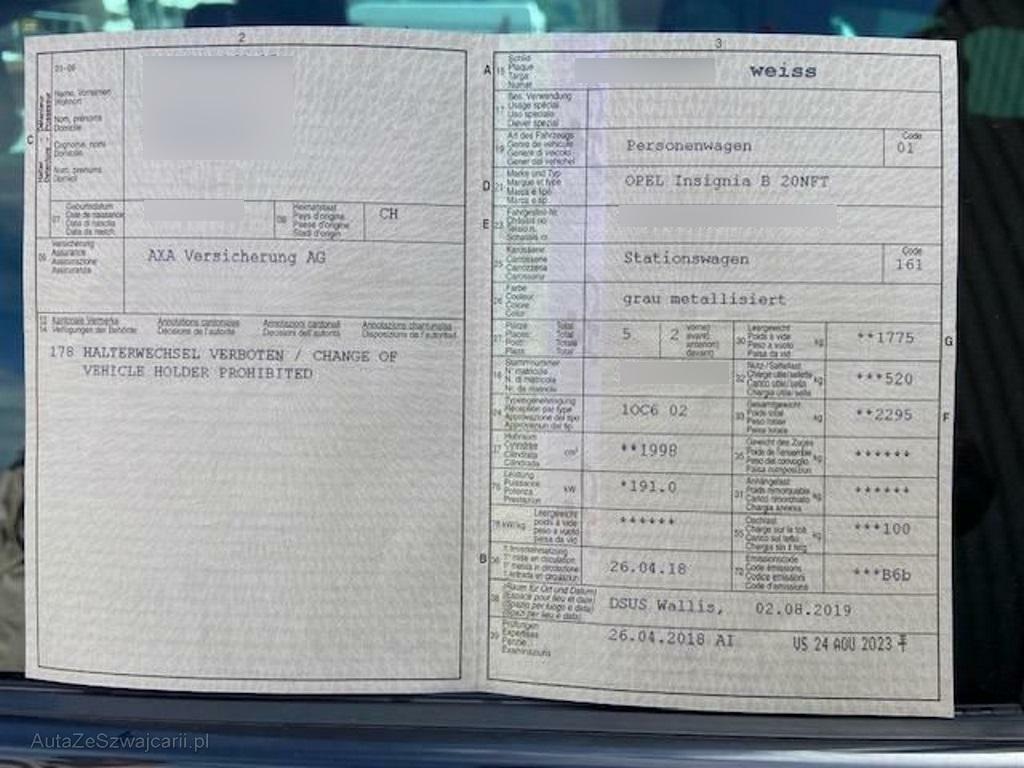 2
01-06
Name, Vornamen
Wohnort
Nom, prénoms
Domicile
Cognome, nomi
Domicilio
Num, prenums
Domicil
C
07
Geburtsdatum
Date de naissance
Data di nascita
Data da nasch.
08
Heimatstaat
Pays d'origine
Paese d'origine
Stadi d'origin
CH
09
Versicherung
Assurance
Assicurazione
Assicuranza
AXA Versicherung AG
13
14
Kantonale Vermerke
Verfügungen der Behörde
Annotations cantonales
Décisions de l'autorité
Annotazioni cantonali
Decisioni dell'autorità
Annotaziuns chantunalas
Disposiziuns da l'autoritad
178 HALTERWECHSEL VERBOTEN / CHANGE OF
VEHICLE HOLDER PROHIBITED
3
A
15
Schild
Plaque
Targa
Numer
weiss
17
Bes. Verwendung
Usage spécial
Uso speciale
Diever spezial
19
Art des Fahrzeugs
Genre de véhicule
Genere di veicolo
Gener dal vehichel
Personenwagen
Code
01
D
21
Marke und Typ
Marque et type
Marca e tipo
Marca e tip
OPEL Insignia B 20NFT
E
23
Fahrgestell-Nr.
Châssis no
Telaio n.
Schassis nr.
25
Karosserie
Carrosserie
Carrozzeria
Carossaria
Stationswagen
Code
161
26
Farbe
Couleur
Colore
Colur
grau metallisiert
27
Plätze Total
Places Total
Posti Totale
Plazs Total
5
2
vorne)
avant)
anteriori)
davant)
30
Leergewicht
Poids à vide
Peso a vuoto
Paisa da vid
kg
**1775
G
18
Stammnummer
N° matricule
N. di matricola
Nr. da matricla
32
Nutz-/Sattellast
Charge utile/sellette
Carico utile/sella
Chargia utila/sella
kg
***520
24
Typengenehmigung
Réception par type
Approvazione del tipo
Approvaziun dal tip
1OC6 02
33
Gesamtgewicht
Poids total
Peso totale
Paisa totala
kg
**2295
F
37
Hubraum
Cylindrée
Cilindrata
Cilindrada
cm³
**1998
35
Gewicht des Zuges
Poids de l'ensemble
Peso del convoglio
Paisa cumposiziun
kg
******
76
Leistung
Puissance
Potenza
Prestaziun
kW
*191.0
31
Anhängelast
Poids remorquable
Carico rimorchiato
Chargia annexa
kg
******
78
kW/kg
Leergewicht
poids à vide
peso a vuoto
paisa da vid
******
55
Dachlast
Charge sur le toit
Carico sul tetto
Chargia sin il tetg
kg
***100
B
36
1. Inverkehrsetzung
1re mise en circulation
1a messa in circolazione
1. entrada en circulaziun
26.04.18
72
Emissionscode
Code émissions
Codice emissioni
Code d'emissiuns
***B6b
38
(Raum für Ort und Datum)
(Espace pour lieu et date)
(Spazio per luogo e data)
(Spazi per lieu e data)
DSUS Wallis, 02.08.2019
39
Prüfungen
Expertises
Perizie
Examinaziuns
26.04.2018 AI
VS 24 AOU 2023
AutaZeSzwajcarii.pl